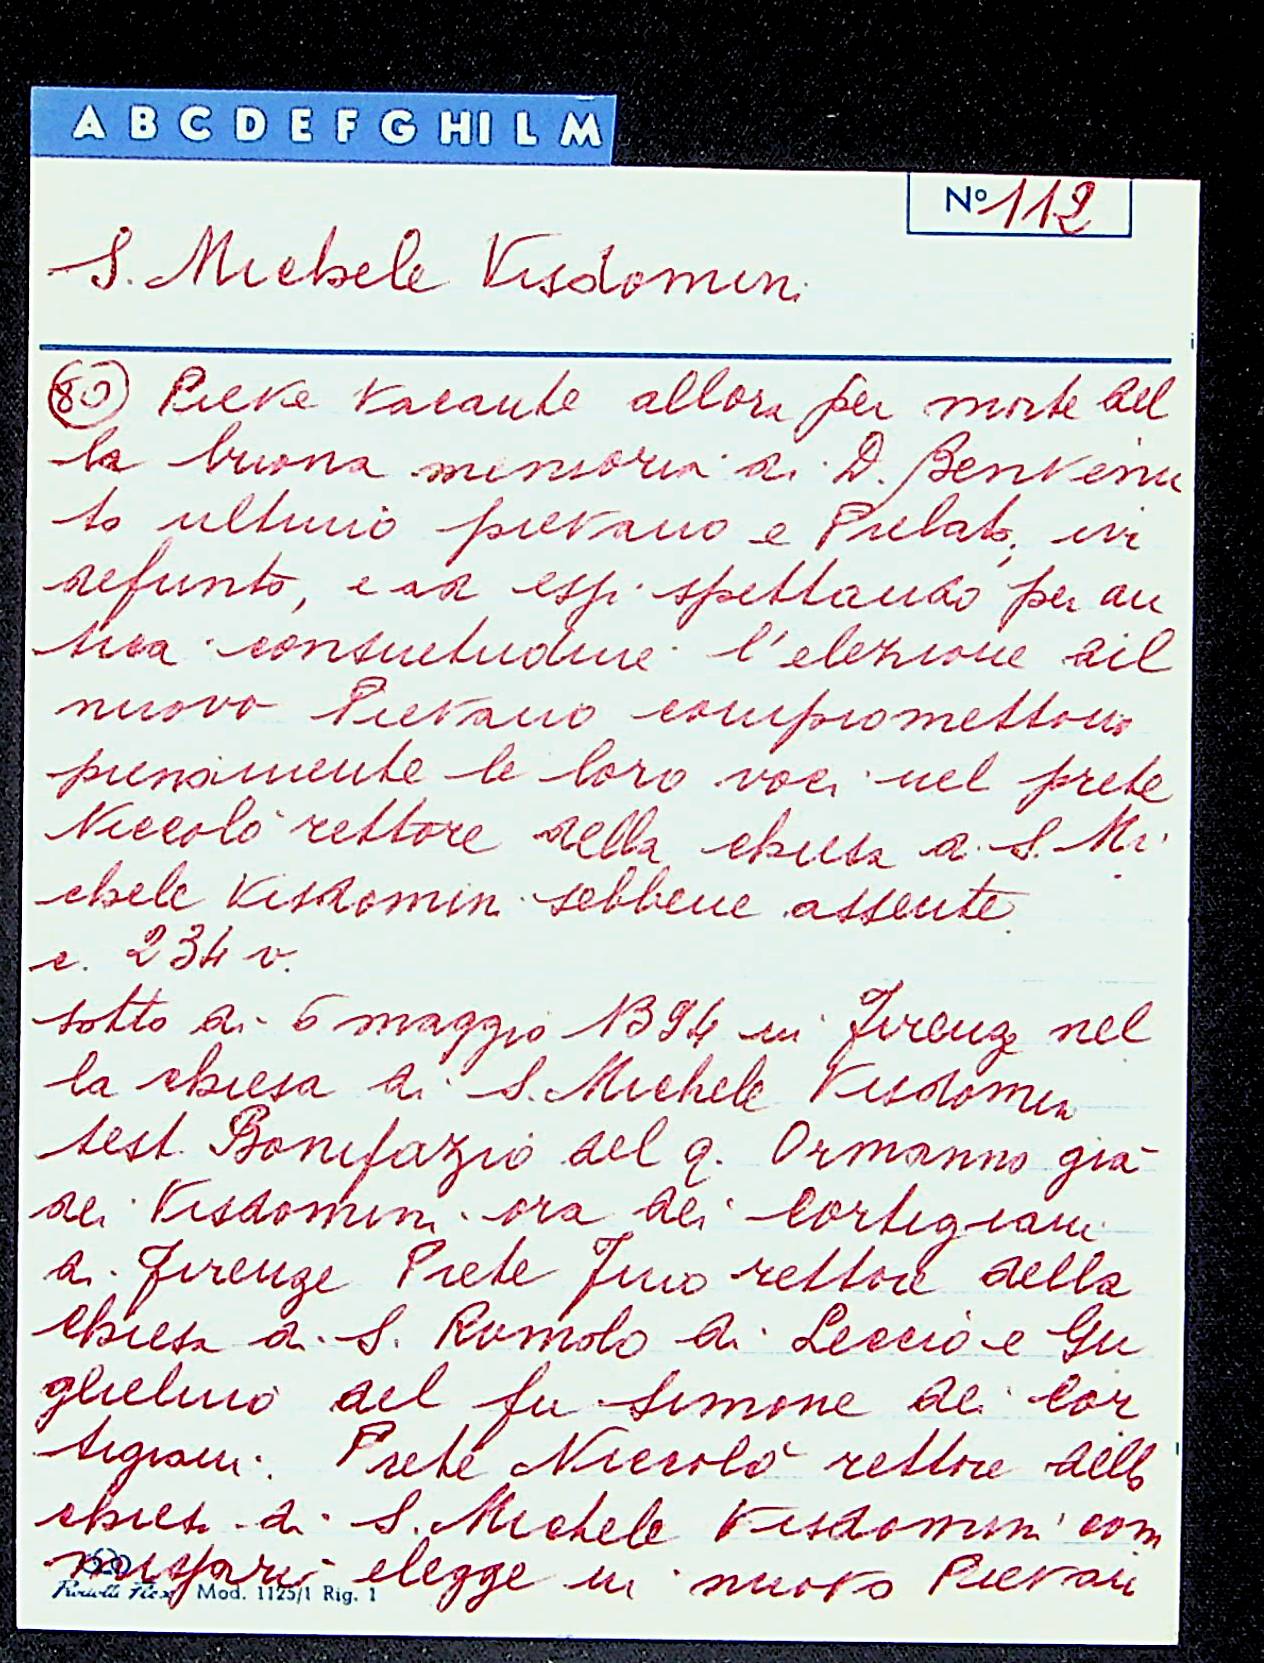 A B C D E F G HI L M
Nº 112
S. Michele Visdomini
80 Pieve vacante allora per morte del
la buona memoria di D. Benvenu
to ultimo pievano e Prelato, ivi
defunto, e ad essi spettando per an
tica consuetudine l'elezione del
nuovo Pievano compromettono
pienamente le loro voci nel prete
Niccolò rettore della chiesa di S. Mi
chele Visdomini sebbene assente
c. 234 v.
sotto di 6 maggio 1394 in Firenze nel
la chiesa di S. Michele Visdomini
test. Bonifazio del q. Ormanno già
dei Visdomini ora dei Cortigiani
di Firenze Prete Jino rettore della
chiesa di S. Romolo di Leccio e Gu
glielmo del fu Simone dei Cor
tigiani. Prete Niccolò rettore della
chiesa di S. Michele Visdomini com
elegge in nuovo Pievan
Mod. 1125/1 Rig. 1